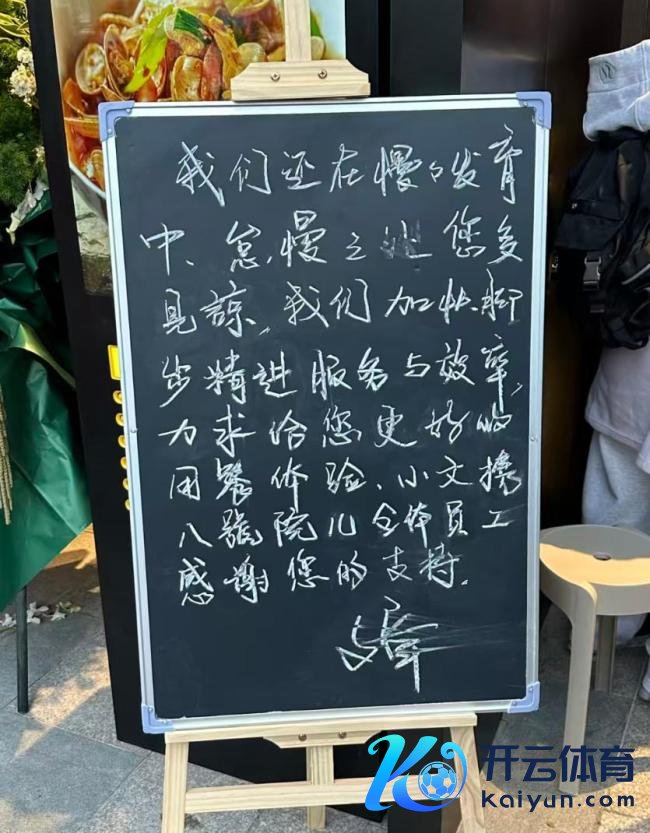 我们还在慢々发育
中、怠慢之处您多
見諒、我们加快腳
步精进服务与效率,
力求给您更好的
用餐体验、小文携
八號院儿全体員工
感谢您的支持.
开云体育
kaiyun.com